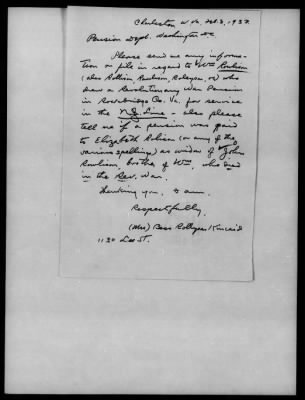 Charleston W. Va. Feb. 3, 1937.
Pension Dept. Washington D.C.
Please send me any informa-
tion on file in regard to Wm
(also Rollison, Rawlison, or) who
drew a Revolutionary War Pension
in Rockbridge Co. Va. for service
in the N.J. Line - also please
tell me if a pension was paid
to Elizabeth (or any of the
various spellings) as widow of John
Rowlison, brother of Wm, who died
in the Rev. War.
Thanking you, I am.
Respectfully,
(Mrs) Bess Kincaid
1130 Lee St.